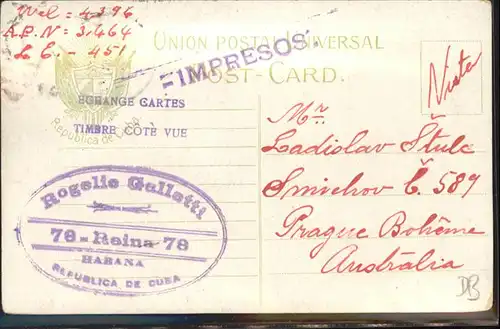 Wel = 4396
A.P.N = 3.464
L E. - 451
UNION POSTAL UNIVERSAL
POST-CARD.
=IMPRESOS.
ECHANGE CARTES
TIMBRE COTÉ VUE
Republica de Cuba
Rogelio Galletti
78-Reina-78
HABANA
REPUBLICA DE CUBA
Vista
Mr.
Ladislav Štulc
Smichov Č. 589
Prague Bohême
Austrália
DB